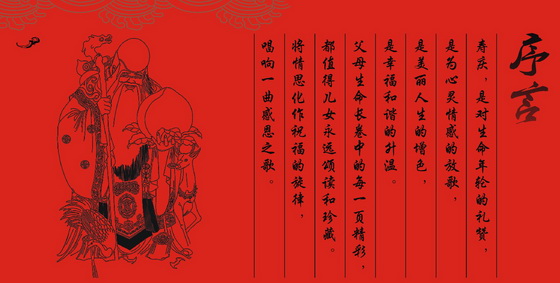 序言
寿庆，是对生命年轮的礼赞，
是为心灵情感的放歌，
是美丽人生的增色，
是幸福和谐的升温。
父母生命长卷中的每一页精彩，
都值得儿女永远颂读和珍藏。
将情思化作祝福的旋律，
唱响一曲感恩之歌。